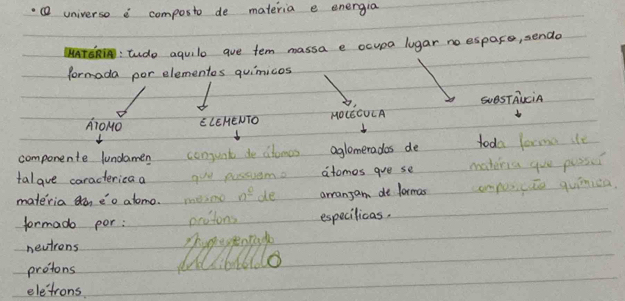 • O universo é composto de matéria e energia
MATÉRIA: tudo aquilo que tem massa e ocupa lugar no espaço, sendo
formada por elementos químicos
ÁTOMO
componente fundamen
tal que caracteriza a
matéria é o atomo.
formado por:
neutrons
prótons
elétrons.
ELEMENTO
conjunto de átomos
que possuem o
mesmo nº de
protons
MOLÉCULA
aglomerados de
átomos que se
arranjam de formas
específicas.
SUBSTÂNCIA
toda forma de
matéria que possui
composição química.